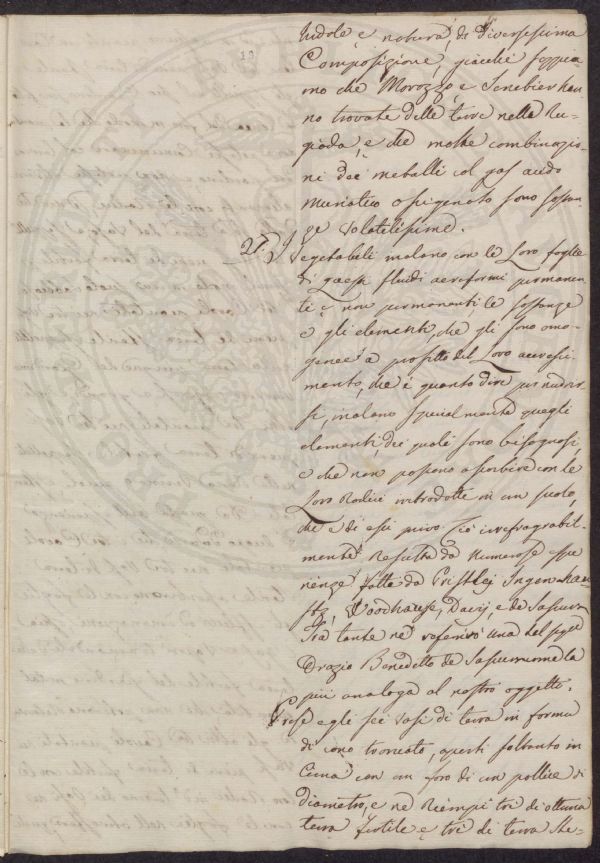 19
Indole, e natura, di diversissima
Composizione, giacchè sappia-
mo che Morozzo, e Senebier han-
no trovate delle terre nella Ru-
giada, e che molte combinazio-
ni de' metalli col gas acido
muriatico ossigenato sono sostan-
ze volatilissime.
27. I Vegetabili inalano con le Loro foglie
di questi fluidi aereformi permanen-
ti e non permanenti, le sostanze
e gli elementi, che gli sono omo-
genei a profitto del Loro accresci-
mento, che è quanto dire per nudrir-
si, inalano specialmente quegli
elementi, dei quali sono bisognosi,
e che non possono assorbire con le
Loro Radici introdotte in un suolo,
che è di essi privo. Ciò irrefragabil-
mente Resulta da numerose espe-
rienze fatte da Pristlej Ingenhau-
sz, Woodhause, Davij, e de Sassur
Fra tante ne referirò una del
Orazio Benedetto de Saussure la
più analoga al nostro oggetto.
Prese egli sei vasi di terra in forma
di cono troncato, aperti soltanto in
Cima con un foro di un pollice di
diametro, e ne Riempì tre di ottima
terra fertile e tre di terra Ste-